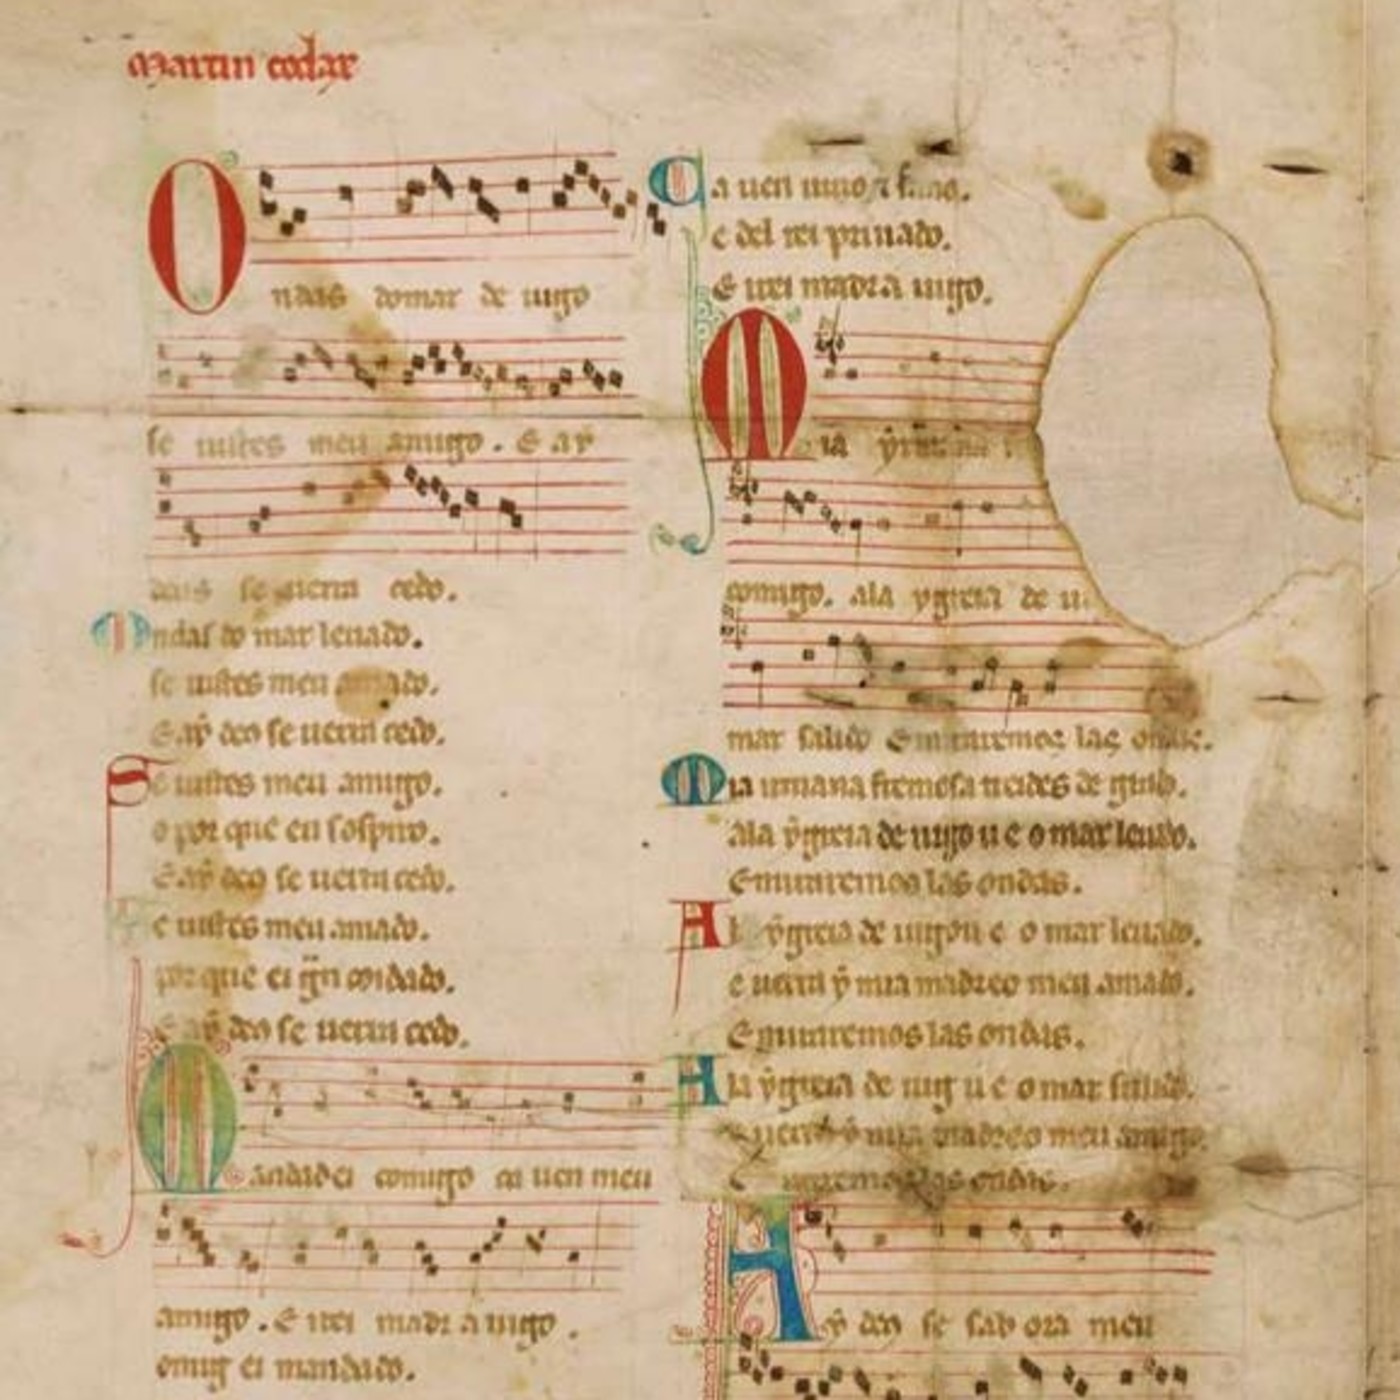 martin codax
Ondas domar de uigo
se uistes meu amigo. E ay
deus se uerra cedo.
Ondas do mar leuado.
se uistes meu amado.
E ay deo se uerra cedo.
Se uistes meu amigo.
o por que eu sospiro.
E ay deo se uerra cedo.
Se uistes meu amado.
por que ei gran coidado.
E ay deo se uerra cedo.
Mandad ei comigo ca uen meu
amigo. E irei madr a uigo.
comig ei mandado.
Ca uen uiuo
e del rei priuado.
E irei madra uigo.
Mia yrmana
comigo. ala ygreia de
mar salido E miraremos las ondas.
Mia irmana fremosa treides de grado.
ala ygreia de uigo u e o mar leuado.
E miraremos las ondas.
A la ygreia de uigo u e o mar leuado.
e uerra y mia madreo meu amado.
E miraremos las ondas.
A la ygreia de uig u e o mar salido.
e uerra y mia madreo meu amigo.
E miraremos las ondas.
Ay deo se sab ora meu